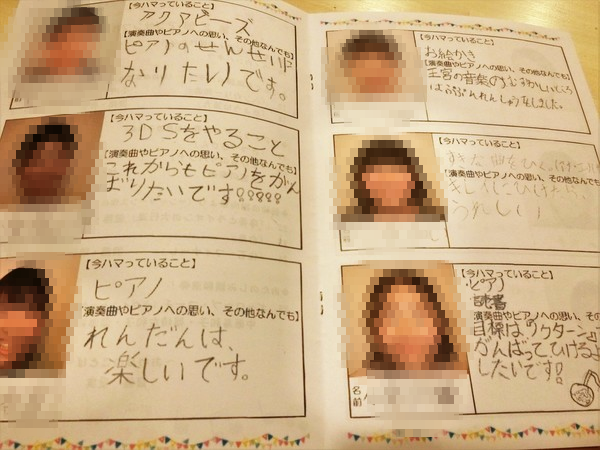 【今ハマっていること】
アクアビーズ
【演奏曲やピアノへの思い、その他なんでも】
ピアノのせんせいに
なりたいです。
【今ハマっていること】
3DSをやること
【演奏曲やピアノへの思い、その他なんでも】
これからもピアノをがん
ばりたいです!!!!!
【今ハマっていること】
ピアノ
【演奏曲やピアノへの思い、その他なんでも】
れんだんは、
楽しいです。
【今ハマっていること】
お絵かき
【演奏曲やピアノへの思い、その他なんでも】
王宮の音楽のむずかしいところ
れんしゅうをしました。
【今ハマっていること】
すきな曲をひく
【演奏曲やピアノへの思い、その他なんでも】
うれしい
【今ハマっていること】
・ピアノ
・読書
演奏曲やピアノへの思い、その他なんでも
目標は「ノクターン」
がんばってひけるよ
したいです!
名前